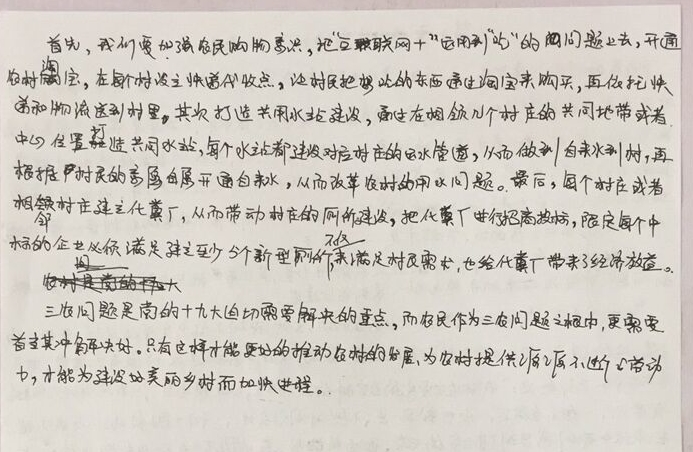 首先，我们要加强农民购物意识，把"互联网+"运用到"吃"的问题上去，开通
农村淘宝，在每个村设立快递代收点，让村民把想吃的东西通过淘宝来购买，再依托快
递和物流送到村里。其次打造共用水站建设，通过在相领几个村庄的共同地带或者
中心位置打造共同水站，每个水站都建设对应村庄的出水管道，从而做到自来水到村，再
根据村民的意愿开通自来水，从而改革农村的用水问题。最后，每个村庄或者
相邻村庄建立化粪厂，从而带动村庄的厕所建设，把化粪厂进行招商投标，限定每个中
标的企业必须满足建立至少5个新型厕所来满足村民需求，也给化粪厂带来了经济效益。
三农问题是南的十九大迫切需要解决的重点，而农民作为三农问题之根本，更需要
首当其冲解决好。只有这样才能更好的推动农村的发展，为农村提供源源不断的劳动
力，才能为建设好美丽乡村而加快进程。